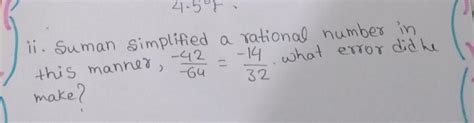 4.5
ii. Suman simplified a rational number in
this manner, -42/-64 = -14/32. what error did he
make?